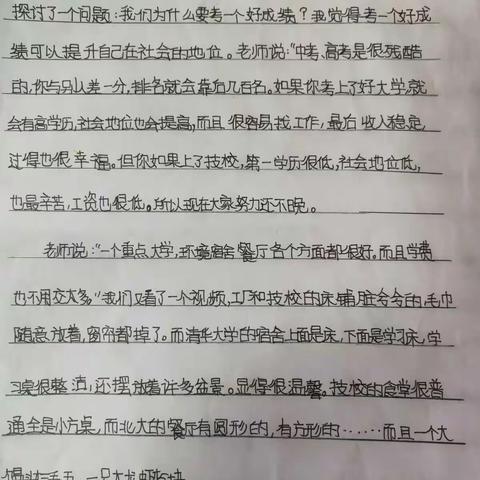 探讨了一个问题:我们为什么要考一个好成绩?我觉得考一个好成
绩可以提升自己在社会的地位。老师说:“中考、高考是很残酷
的,你与别人差一分,排名就会靠后几百名。如果你考上了好大学,就
会有高学历,社会地位也会提高,而且很容易找工作,最后收入稳定,
过得也很幸福。但你如果上了技校,第一学历很低,社会地位低,
也最辛苦,工资也很低。所以现在大家努力还不晚。
老师说:“一个重点大学,环境宿舍餐厅各个方面都很好。而且学费
也不用交太多”我们又看了一个视频,工厂和技校的床铺脏兮兮的毛巾
随意放着,窗帘都掉了。而清华大学的宿舍上面是床,下面是学习床,学
习桌很整洁,还摆放着许多盆景。显得很温馨。技校的食堂很普
通全是小方桌,而北大的餐厅有圆形的,有方形的……而且一个大
一只大龙虾